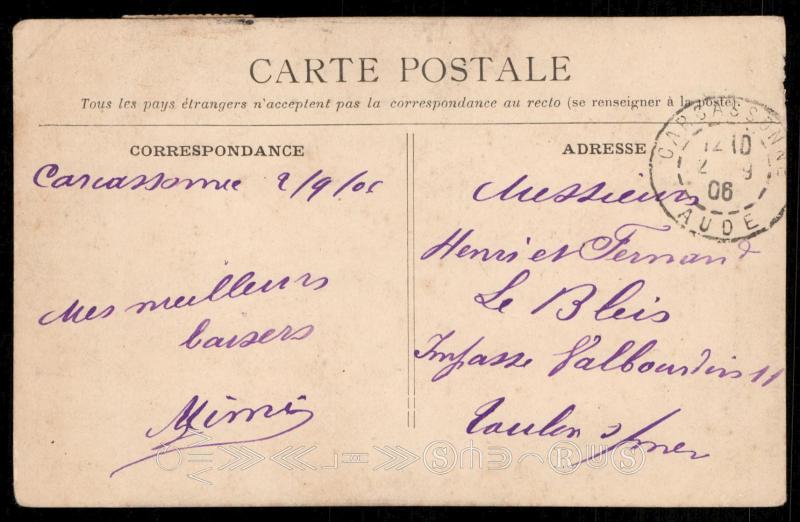 CARTE POSTALE
Tous les pays étrangers n'acceptent pas la correspondance au recto (se renseigner à la poste).
CORRESPONDANCE
Carcassonne 2/9/06
Mes meilleurs
baisers
Mimi
ADRESSE
Messieurs
Henri et Fernand
Le Bleis
Impasse Valbourdin 11
Toulon s/mer
CARCASSONNE
12 10
2 9
06
AUDE